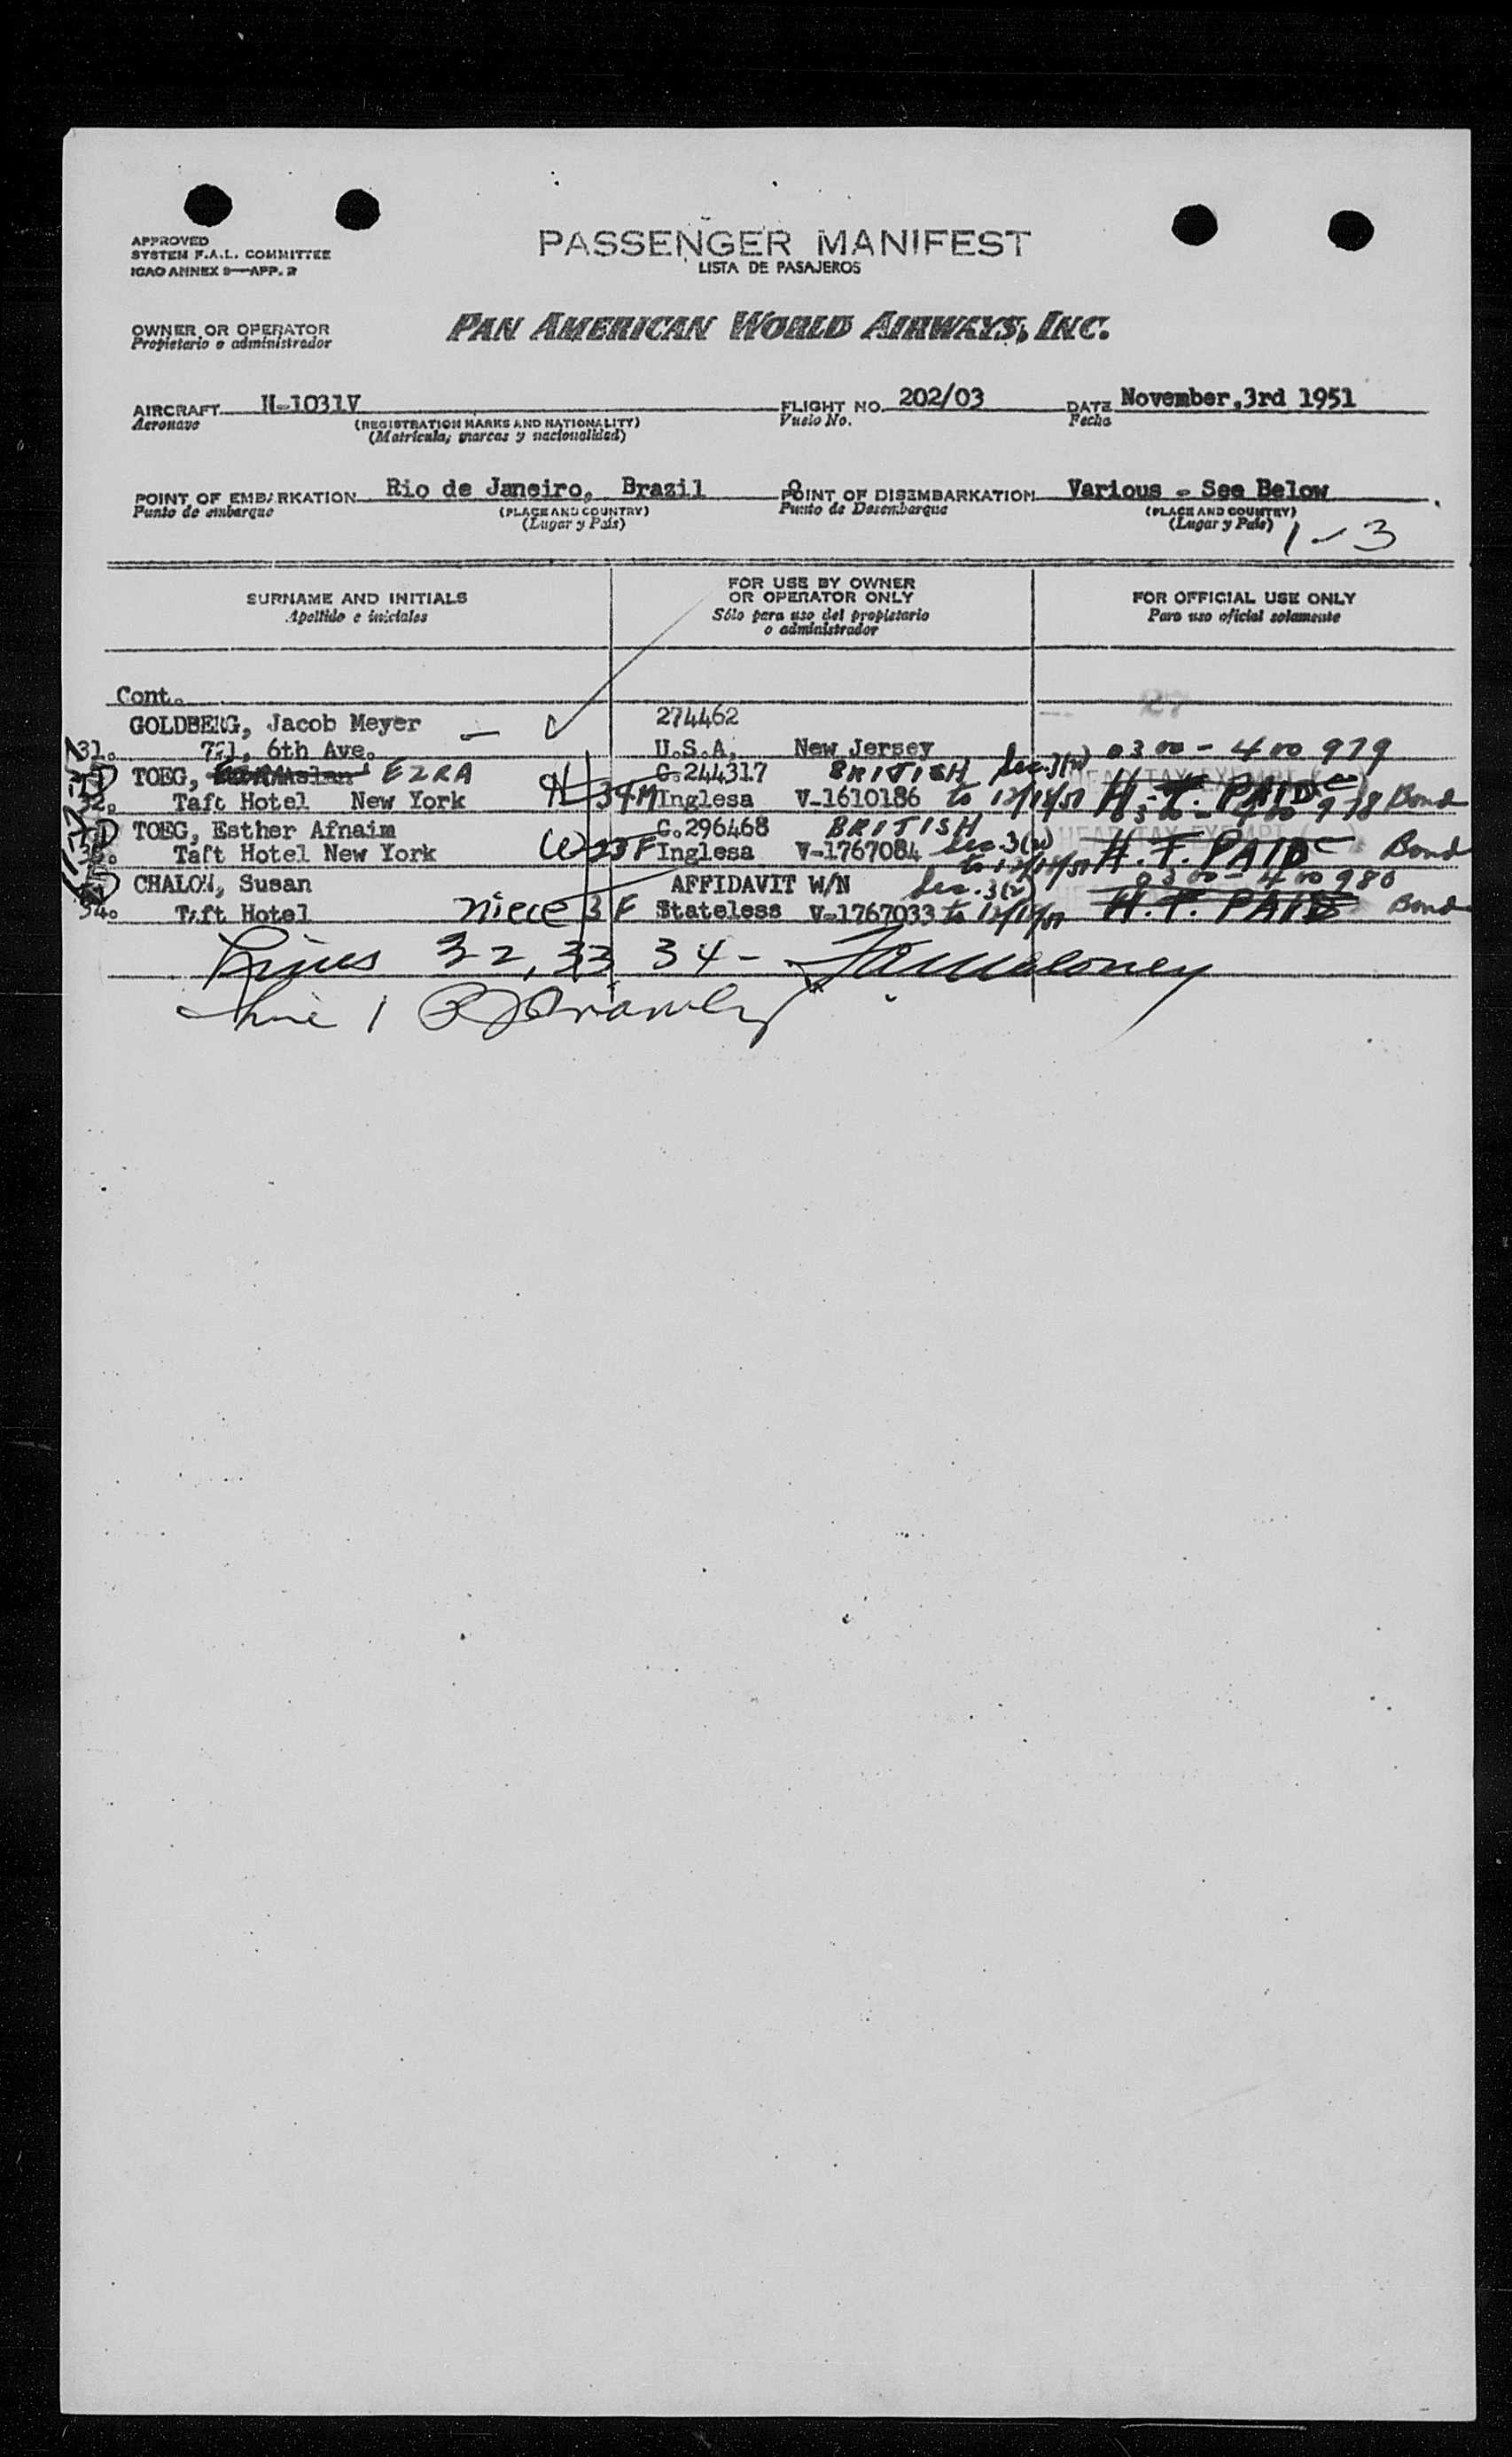 APPROVED
SYSTEM F.A.L. COMMITTEE
ICAO ANNEX 9—APP. 2
PASSENGER MANIFEST
LISTA DE PASAJEROS
OWNER OR OPERATOR
Propietario o administrador
PAN AMERICAN WORLD AIRWAYS, INC.
AIRCRAFT N-1031V
Aeronave
(REGISTRATION MARKS AND NATIONALITY)
(Matrícula, marcas y nacionalidad)
FLIGHT NO. 202/03
Vuelo No.
DATE November,3rd 1951
Fecha
POINT OF EMBARKATION Rio de Janeiro, Brazil
Punto de embarque
(PLACE AND COUNTRY)
(Lugar y País)
POINT OF DISEMBARKATION Various - See Below
Punto de Desembarque
(PLACE AND COUNTRY)
(Lugar y País)
1-3
SURNAME AND INITIALS
Apellido e iniciales
FOR USE BY OWNER
OR OPERATOR ONLY
Sólo para uso del propietario
o administrador
FOR OFFICIAL USE ONLY
Para uso oficial solamente
Cont.
27
GOLDBERG, Jacob Meyer — 274462
31. 6th Ave. U.S.A, New Jersey 0300 - 400 979
TOEG, EZRA G.244317 BRITISH Sec. 3(2)
32. Taft Hotel New York H 34 M Inglesa V-1610186 to H.T. PAID 978 Bond
TOEG, Esther Afnaim G.296468 BRITISH
33. Taft Hotel New York W 23 F Inglesa V-1767084 Sec. 3(2) to H.T. PAID Bond
CHALOM, Susan AFFIDAVIT W/N Sec. 3(2) 0300 - 400 980
34. Taft Hotel niece 3 F Stateless V-1767033 to H.T. PAID Bond
Lines 32, 33 34 -
Line 1